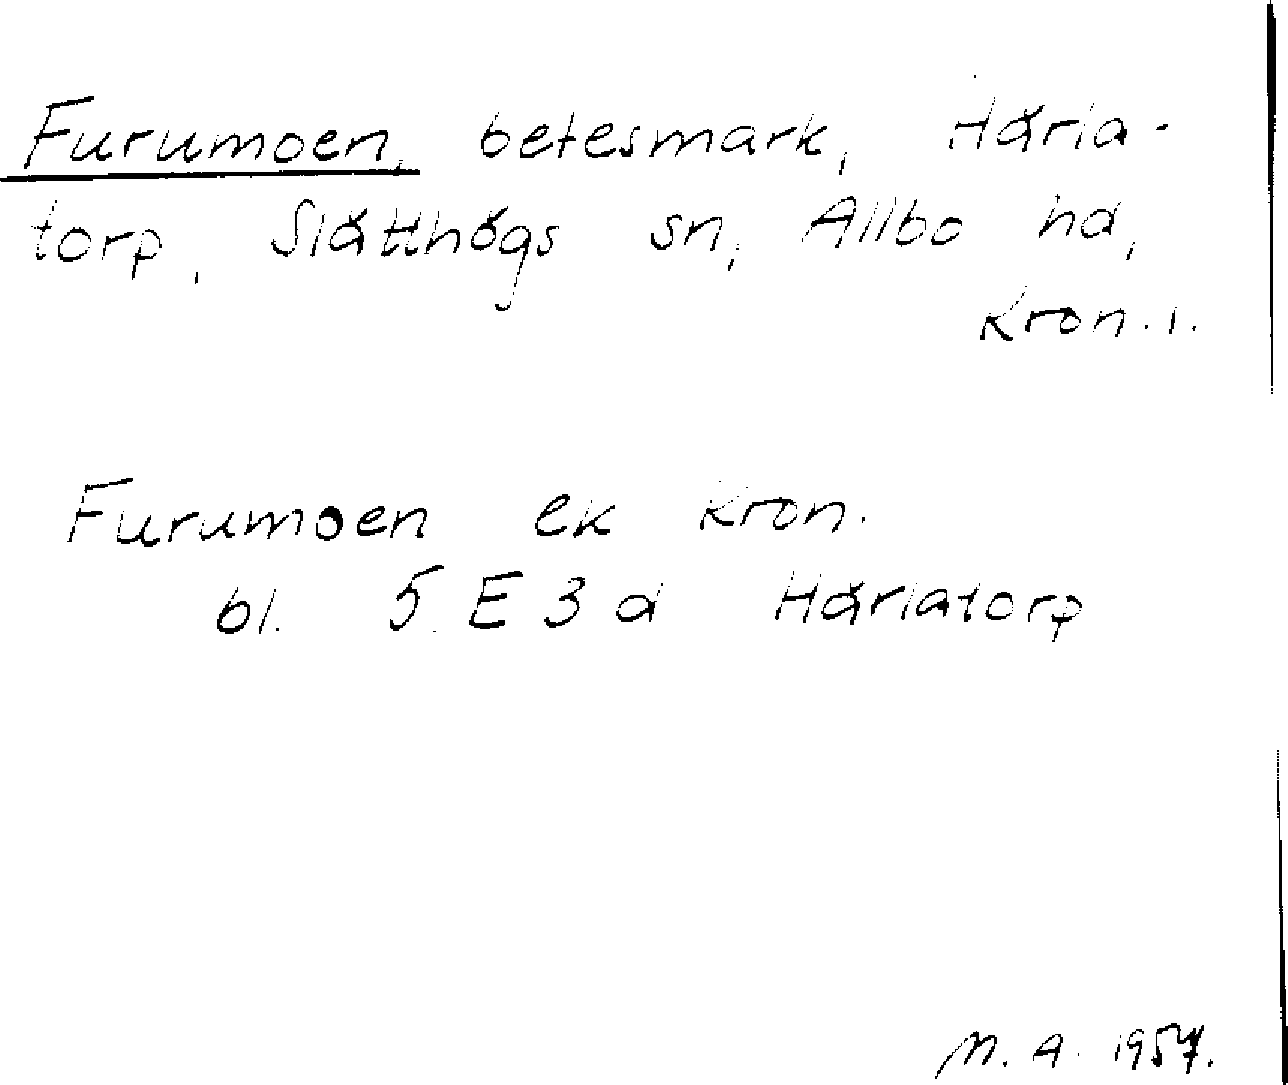 Furumoen, betesmark, Härla-
torp, Slätthögs sn, Allbo hd,
Kron. l.
Furumoen ek Kron.
bl. 5 E 3 d Härlatorp
M. A. 1957.